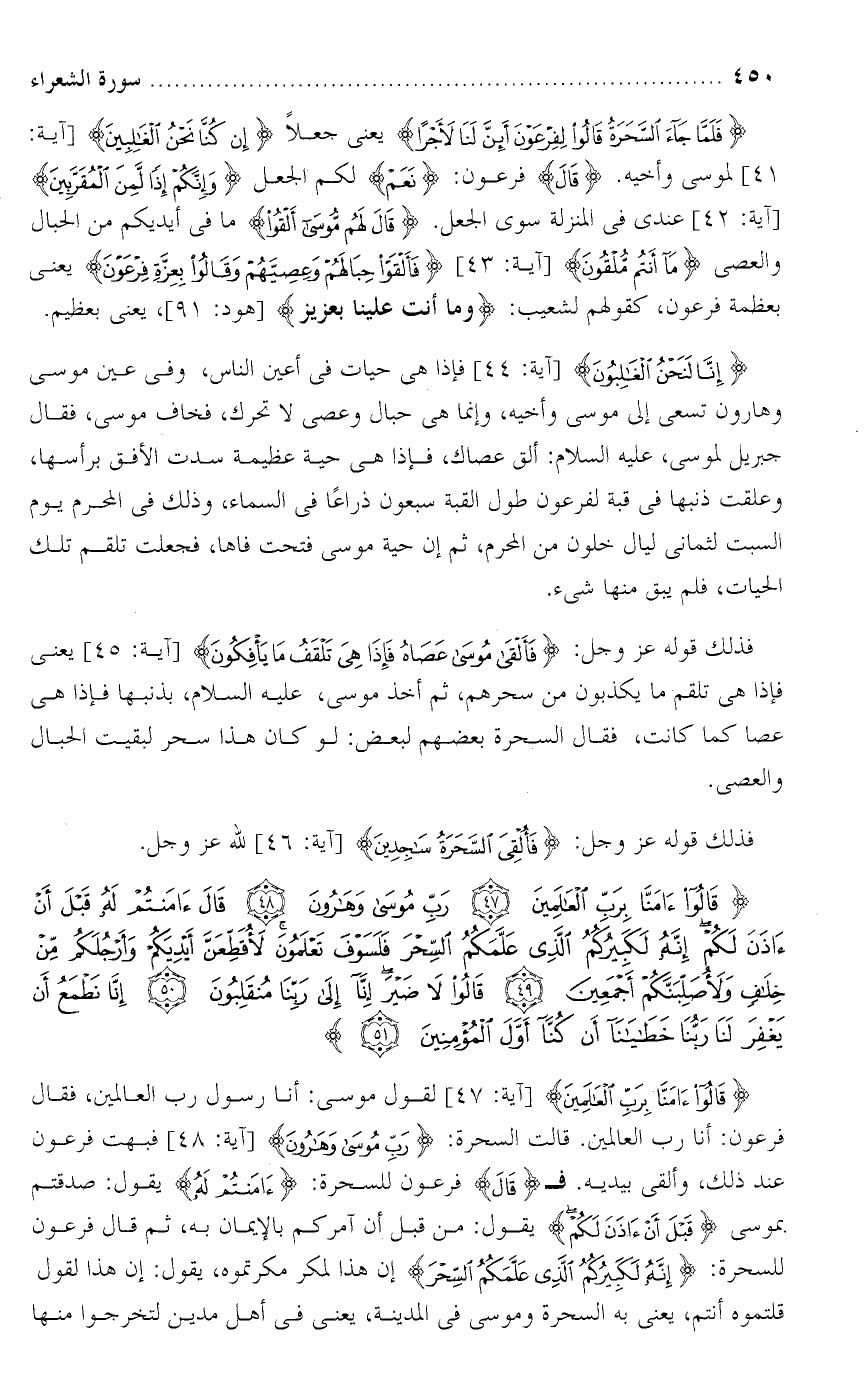 ٤٥٠ ........................................................................ سورة الشعراء
﴿ فَلَمَّا جَآءَ ٱلسَّحَرَةُ قَالُوا۟ لِفِرْعَوْنَ أَئِنَّ لَنَا لَأَجْرًا﴾ يعنى جعلاً ﴿ إِن كُنَّا نَحْنُ ٱلْغَٰلِبِينَ﴾ [آية:
٤١] لموسى وأخيه. ﴿ قَالَ﴾ فرعون: ﴿ نَعَمْ﴾ لكم الجعل ﴿ وَإِنَّكُمْ إِذًا لَّمِنَ ٱلْمُقَرَّبِينَ﴾
[آية: ٤٢] عندى فى المنزلة سوى الجعل. ﴿ قَالَ لَهُم مُّوسَىٰٓ أَلْقُوا۟﴾ ما فى أيديكم من الحبال
والعصى ﴿ مَآ أَنتُم مُّلْقُونَ﴾ [آية: ٤٣] ﴿ فَأَلْقَوْا۟ حِبَالَهُمْ وَعِصِيَّهُمْ وَقَالُوا۟ بِعِزَّةِ فِرْعَوْنَ﴾ يعنى
بعظمة فرعون، كقولهم لشعيب: ﴿وما أنت علينا بعزيز ﴾ [هود: ٩١]، يعنى بعظيم.
﴿ إِنَّا لَنَحْنُ ٱلْغَٰلِبُونَ﴾ [آية: ٤٤] فإذا هى حيات فى أعين الناس، وفى عين موسى
وهارون تسعى إلى موسى وأخيه، وإنما هى حبال وعصى لا تحرك، فخاف موسى، فقال
جبريل لموسى، عليه السلام: ألق عصاك، فإذا هى حية عظيمة سدت الأفق برأسها،
وعلقت ذنبها فى قبة لفرعون طول القبة سبعون ذراعًا فى السماء، وذلك فى المحرم يوم
السبت لثمانى ليال خلون من المحرم، ثم إن حية موسى فتحت فاها، فجعلت تلقم تلك
الحيات، فلم يبق منها شىء.
فذلك قوله عز وجل: ﴿ فَأَلْقَىٰ مُوسَىٰ عَصَاهُ فَإِذَا هِىَ تَلْقَفُ مَا يَأْفِكُونَ﴾ [آية: ٤٥] يعنى
فإذا هى تلقم ما يكذبون من سحرهم، ثم أخذ موسى، عليه السلام، بذنبها فإذا هى
عصا كما كانت، فقال السحرة بعضهم لبعض: لو كان هذا سحر لبقيت الحبال
والعصى.
فذلك قوله عز وجل: ﴿ فَأُلْقِىَ ٱلسَّحَرَةُ سَٰجِدِينَ﴾ [آية: ٤٦] لله عز وجل.
﴿ قَالُوٓا۟ ءَامَنَّا بِرَبِّ ٱلْعَٰلَمِينَ ٤٧ رَبِّ مُوسَىٰ وَهَٰرُونَ ٤٨ قَالَ ءَامَنتُمْ لَهُۥ قَبْلَ أَنْ
ءَاذَنَ لَكُمْ ۖ إِنَّهُۥ لَكَبِيرُكُمُ ٱلَّذِى عَلَّمَكُمُ ٱلسِّحْرَ فَلَسَوْفَ تَعْلَمُونَ ۚ لَأُقَطِّعَنَّ أَيْدِيَكُمْ وَأَرْجُلَكُم مِّنْ
خِلَٰفٍ وَلَأُصَلِّبَنَّكُمْ أَجْمَعِينَ ٤٩ قَالُوا۟ لَا ضَيْرَ ۖ إِنَّآ إِلَىٰ رَبِّنَا مُنقَلِبُونَ ٥٠ إِنَّا نَطْمَعُ أَن
يَغْفِرَ لَنَا رَبُّنَا خَطَٰيَٰنَآ أَن كُنَّآ أَوَّلَ ٱلْمُؤْمِنِينَ ٥١ ﴾
﴿ قَالُوٓا۟ ءَامَنَّا بِرَبِّ ٱلْعَٰلَمِينَ﴾ [آية: ٤٧] لقول موسى: أنا رسول رب العالمين، فقال
فرعون: أنا رب العالمين. قالت السحرة: ﴿ رَبِّ مُوسَىٰ وَهَٰرُونَ﴾ [آية: ٤٨] فبهت فرعون
عند ذلك، وألقى بيديه. فـ﴿ قَالَ﴾ فرعون للسحرة: ﴿ ءَامَنتُمْ لَهُۥ﴾ يقول: صدقتم
بموسى ﴿ قَبْلَ أَنْ ءَاذَنَ لَكُمْ ۖ﴾ يقول: من قبل أن آمركم بالإيمان به، ثم قال فرعون
للسحرة: ﴿ إِنَّهُۥ لَكَبِيرُكُمُ ٱلَّذِى عَلَّمَكُمُ ٱلسِّحْرَ﴾ إن هذا لمكر مكرتموه، يقول: إن هذا لقول
قلتموه أنتم، يعنى به السحرة وموسى فى المدينة، يعنى فى أهل مدين لتخرجوا منها